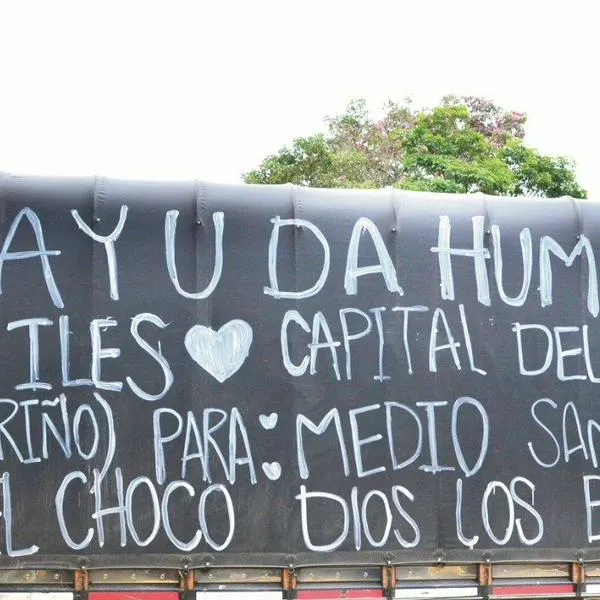 AYUDA HUM
ILES ♥ CAPITAL DEL
RIÑO) PARA: MEDIO SAN
EL CHOCO DIOS LOS B